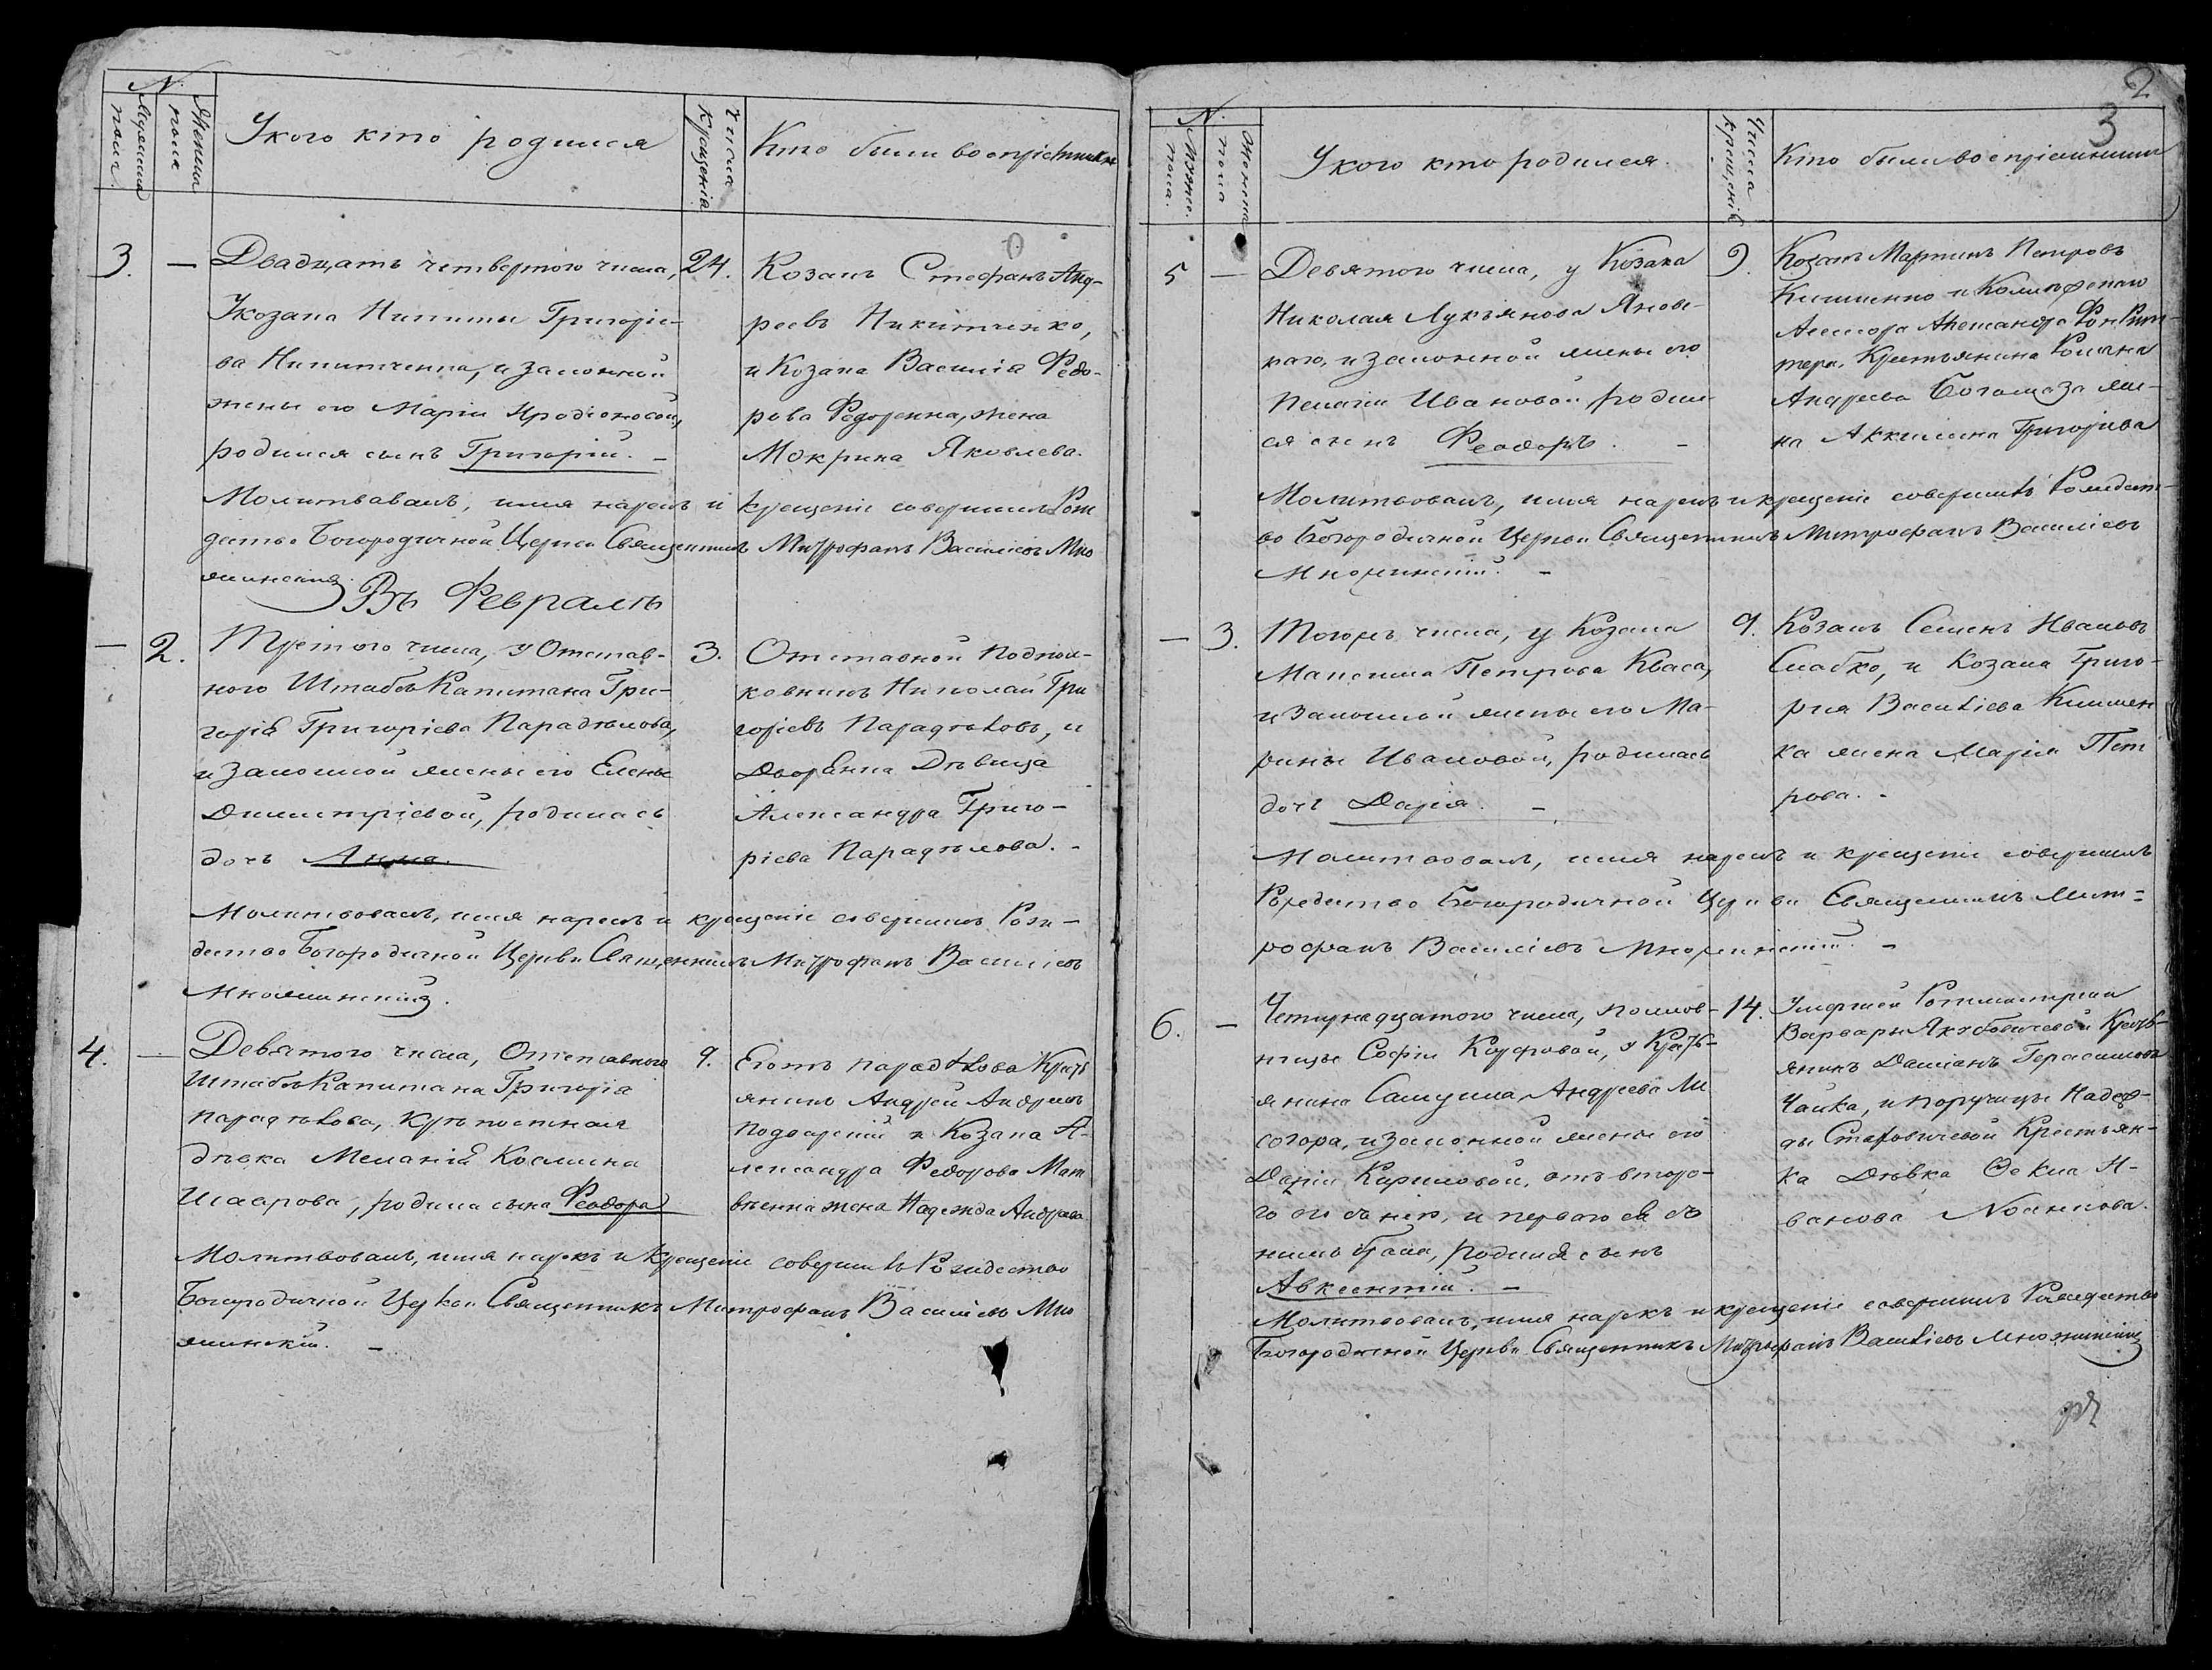 N.
Мужеска пола.
Женска пола
У кого кто родился
Числа крещенія
Кто были воспріемники
3.
—
Двадцать четвертого числа,
У козака Никиты Григоріе-
ва Никитченка, и законной
жены его Маріи Иродіоновой,
родился сынъ Григорій. —
24.
Козакъ Стефанъ Анд-
реевъ Никитченко,
и Козака Василія Федо-
рова Федоренка, жена
Мокрина Яковлева.
Молитвовалъ, имя нарекъ и крещеніе совершилъ Рож
дество Богородичной Церкви Священникъ Митрофанъ Василіевъ Мно
жинскій
Въ Февралѣ
—
2.
Третьего числа, у Отстав-
ного Штабсъ Капитана Гри-
горія Григоріева Парадѣлова,
и законной жены его Елены
Димитріевой, родилась
дочь Анна.
3.
Отставной Подпол-
ковникъ Николай Гри
горіевъ Парадѣловъ, и
Дворянка Дѣвица
Александра Григо-
ріева Парадѣлова. -
Молитвовалъ, имя нарекъ и крещеніе совершилъ Рож-
дество Богородичной Церкви Священникъ Митрофанъ Василіевъ
Множинскій.
4.
—
Девятого числа, Отставного
Штабсъ Капитана Григорія
Парадѣлова, крѣпостная
дѣвка Меланія Космина
родила сына Феодора
9.
Егожъ Парадѣлова Крестъ
янинъ Андрей Андреевъ
и Козака А-
лександра Федорова Мат
вѣенка жена Надежда Андреева
Молитвовалъ, имя нарекъ и крещеніе совершилъ Рождество
Богородичной Церкви Священникъ Митрофанъ Василіевъ Мно
жинскій. —
2
3
N.
Мужес. пола.
Женска пола
У кого кто родился.
Числа крещенія
Кто были воспріемники
5
—
Девятого числа, у Козака
Николая Лукьянова Яновс-
каго, и законной жены его
Пелагіи Ивановой, родил
ся сынъ Феодоръ. —
9.
Козакъ Мартинъ Петровъ
Кишненко и Колежского
Асессора Александра Фон Рит-
тера. Крестьянина Романа
Андреева Богомаза же-
на Аккилина Григорьева
Молитвовалъ, имя нарекъ и крещеніе совершилъ Рождест-
во Богородичной Церкви Священникъ Митрофанъ Василіевъ
Множинскій. —
—
3.
Тогожъ числа, у Козака
Максима Петрова Кваса,
и законной жены его Ма-
рины Ивановой, родилась
дочь Дарія. —
9.
Козакъ Семенъ Ивановъ
Слабко, и Козака Григо-
рія Василіева Кишнен
ка жена Марія Пет
рова. -
Молитвовалъ, имя нарекъ и крещеніе совершилъ
Рождество Богородичной Церкви Священникъ Мит-
рофанъ Василіевъ Множинскій. —
6.
—
Четырнадцатого числа, Полков-
ницы Софіи у Крестъ-
янина Самуила Андреева Ми
согора, и законной жены его
Даріи Кириловой, отъ второ-
го его съ нею, и первого ея съ
нимъ брака, родился сынъ
Авксентій. —
14.
Умершей Ротмистрши
Варвары Якубовичевой Крестъ-
янинъ Даміанъ Герасимовъ
Чайка, и поручицы Надеж-
ды Крестьян-
ка Дѣвка Ѳекла И-
ванова
Молитвовалъ, имя нарекъ и крещеніе совершилъ Рождество
Богородичной Церкви Священникъ Митрофанъ Василіевъ Множинскій